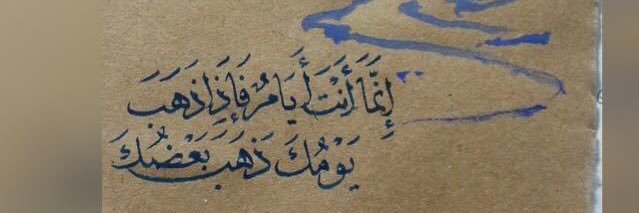 إِنَّمَا أَنْتَ أَيَامٌ فَإِذَا ذَهَبَ
يَوْمُكَ ذَهَبَ بَعْضُكَ